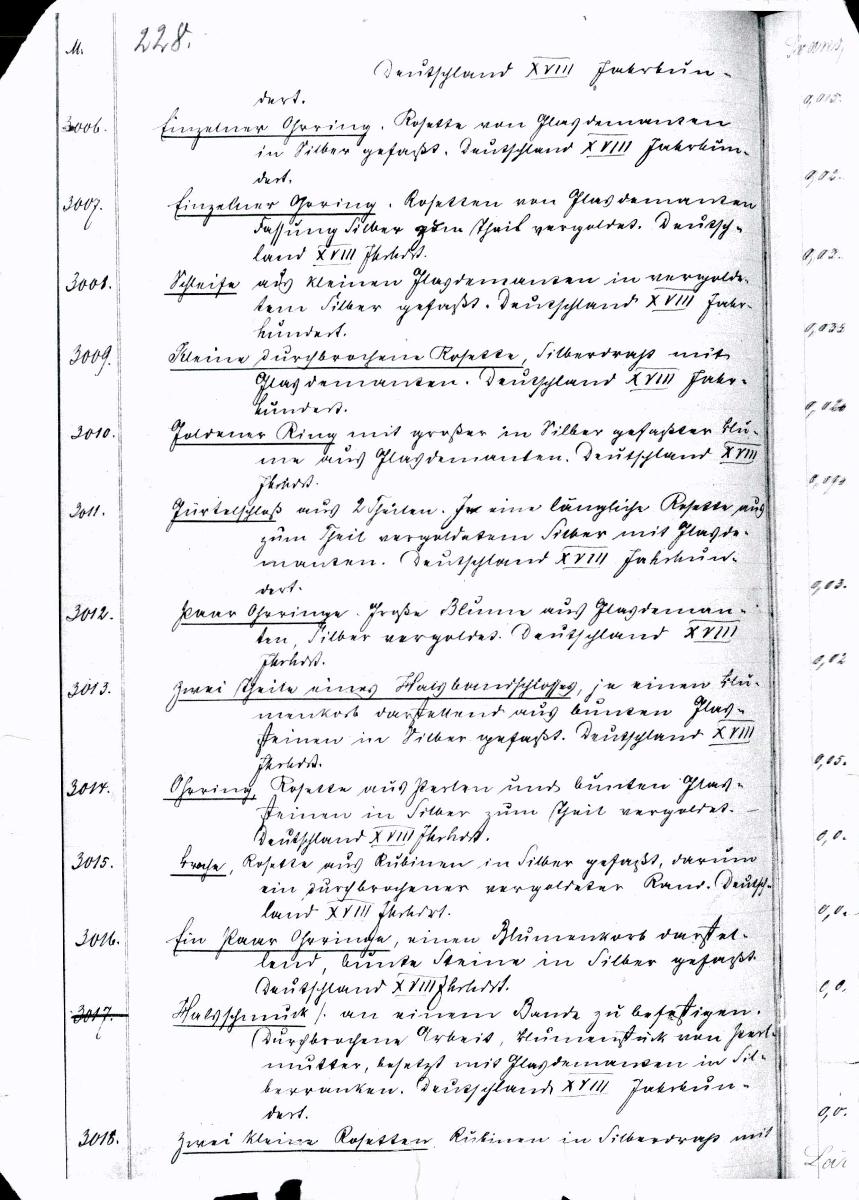 N. 228.
Deutschland XVIII Jahrhun-
dert.
3006. Einzelner Ohrring. Rosette von Glasdemanten
in Silber gefaßt. Deutschland XVIII Jahrhun-
dert.
3007. Einzelner Ohrring. Rosetten von Glasdemanten
Fassung Silber zum Theil vergoldet. Deutsch-
land XVIII Jhrhdt.
3008. Schleife aus kleinen Glasdemanten in vergolde-
tem Silber gefaßt. Deutschland XVIII Jahr-
hundert.
3009. Kleine durchbrochene Rosette, Silberdraht mit
Glasdemanten. Deutschland XVIII Jahr-
hundert.
3010. Goldener Ring mit großer in Silber gefaßter Blu-
me aus Glasdemanten. Deutschland XVIII
Jhrhdt.
3011. Gürtelschloß aus 2 Theilen. Je eine längliche Rosette aus
zum Theil vergoldetem Silber mit Glasde-
manten. Deutschland XVIII Jahrhun-
dert.
3012. Paar Ohrringe. Große Blume aus Glasdeman-
ten, Silber vergoldet. Deutschland XVIII
Jhrhdt.
3013. Zwei Theile eines Halsbandschlosses, je einen Blu-
menkorb darstellend aus bunten Glas-
steinen in Silber gefaßt. Deutschland XVIII
Jhrhdt.
3014. Ohrring, Rosette aus Perlen und bunten Glas-
steinen in Silber zum Theil vergoldet.
Deutschland XVIII Jhrhdt.
3015. Broche, Rosette aus Rubinen in Silber gefaßt, darum
ein durchbrochener vergoldeter Rand. Deutsch-
land XVIII Jhrhdrt.
3016. Ein Paar Ohrringe, einen Blumenkorb darstel-
lend, bunte Steine in Silber gefaßt.
Deutschland XVIII Jhrhdt.
3017. Halsschmuck /. an einem Bande zu befestigen.
Durchbrochene Arbeit, Blumenstück von Perl-
mutter, besetzt mit Glasdemanten in Sil-
berranken. Deutschland XVIII Jahrhun-
dert.
3018. Zwei kleine Rosetten Rubinen in Silberdraht mit
0,015.
0,02.
0,02.
0,035
0,020
0,03.
0,02
0,05.
0,0.
0,0.
0,0.
0,0.